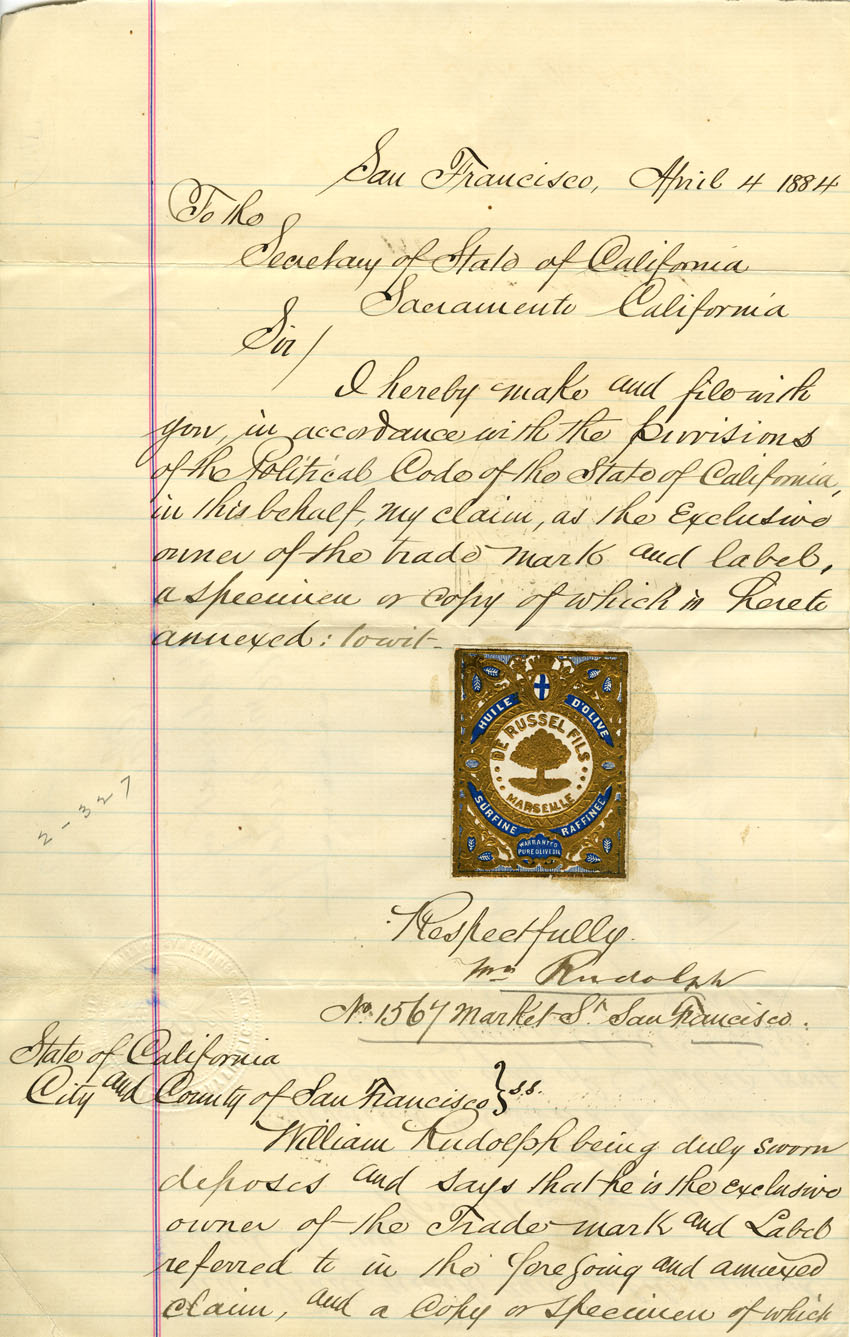 San Francisco, April 4 1884
To the
Secretary of State of California
Sacramento California
Sir/
I hereby make and file with
you, in accordance with the provisions
of the Political Code of the State of California,
in this behalf, my claim, as the Exclusive
owner of the trade mark and label,
a specimen or copy of which is hereto
annexed: towit-
HUILE D'OLIVE
DE RUSSEL FILS
MARSEILLE
SURFINE RAFFINÉE
WARRANTED
PURE OLIVE OIL
2-327
Respectfully
Wm Rudolph
No. 1567 Market St. San Francisco.
State of California
City and County of San Francisco } s.s.
William Rudolph being duly sworn
deposes and says that he is the exclusive
owner of the Trade mark and Label
referred to in the foregoing and annexed
claim, and a Copy or specimen of which